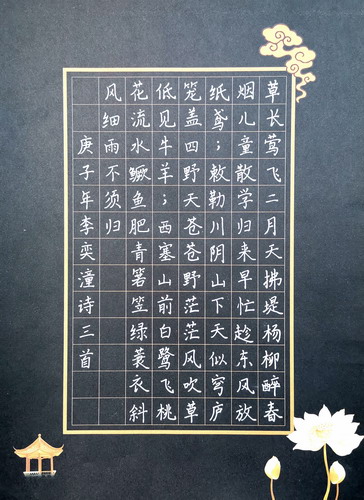 草长莺飞二月天拂堤杨柳醉春
烟儿童散学归来早忙趁东风放
纸鸢；敕勒川阴山下天似穹庐
笼盖四野天苍苍野茫茫风吹草
低见牛羊；西塞山前白鹭飞桃
花流水鳜鱼肥青箬笠绿蓑衣斜
风细雨不须归
庚子年李奕潼诗三首